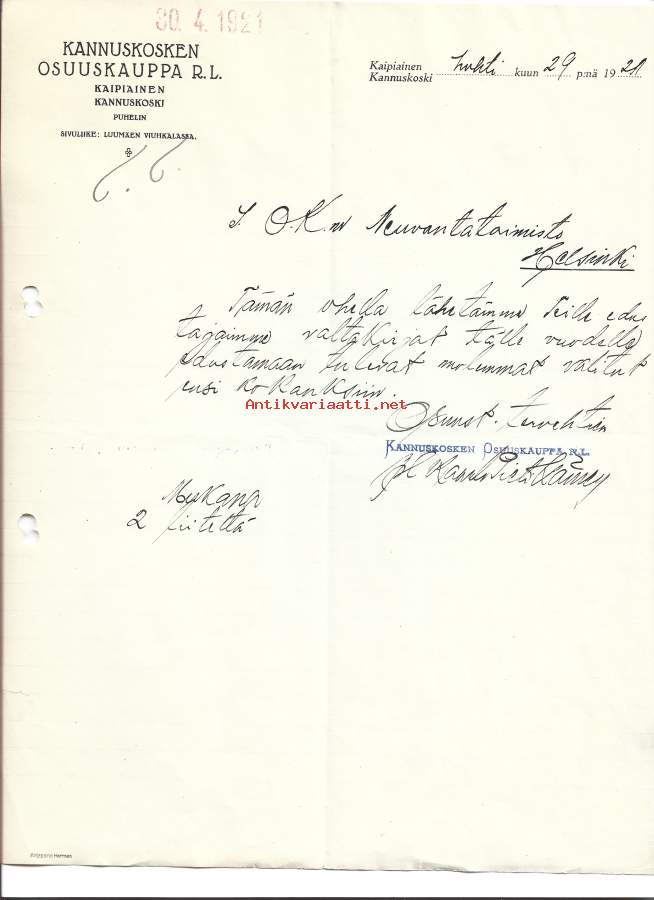 30. 4. 1921
KANNUSKOSKEN
OSUUSKAUPPA R.L.
KAIPIAINEN
KANNUSKOSKI
PUHELIN
SIVULIIKE: LUUMÄEN VIUHKALASSA.
Kaipiainen
Kannuskoski huhti kuun 29 p:nä 1921
S. O.K.n Neuvontatoimisto
Helsinki
Tämän ohella lähetämme Teille edus
tajaimme valtakirjat tälle vuodelle
edustamaan tulevat molemmat valitut
ensi kokouksiin.
Antikvariaatti.net
Osuust. tervehtien
KANNUSKOSKEN OSUUSKAUPPA R.L.
Mukana
2 liitettä